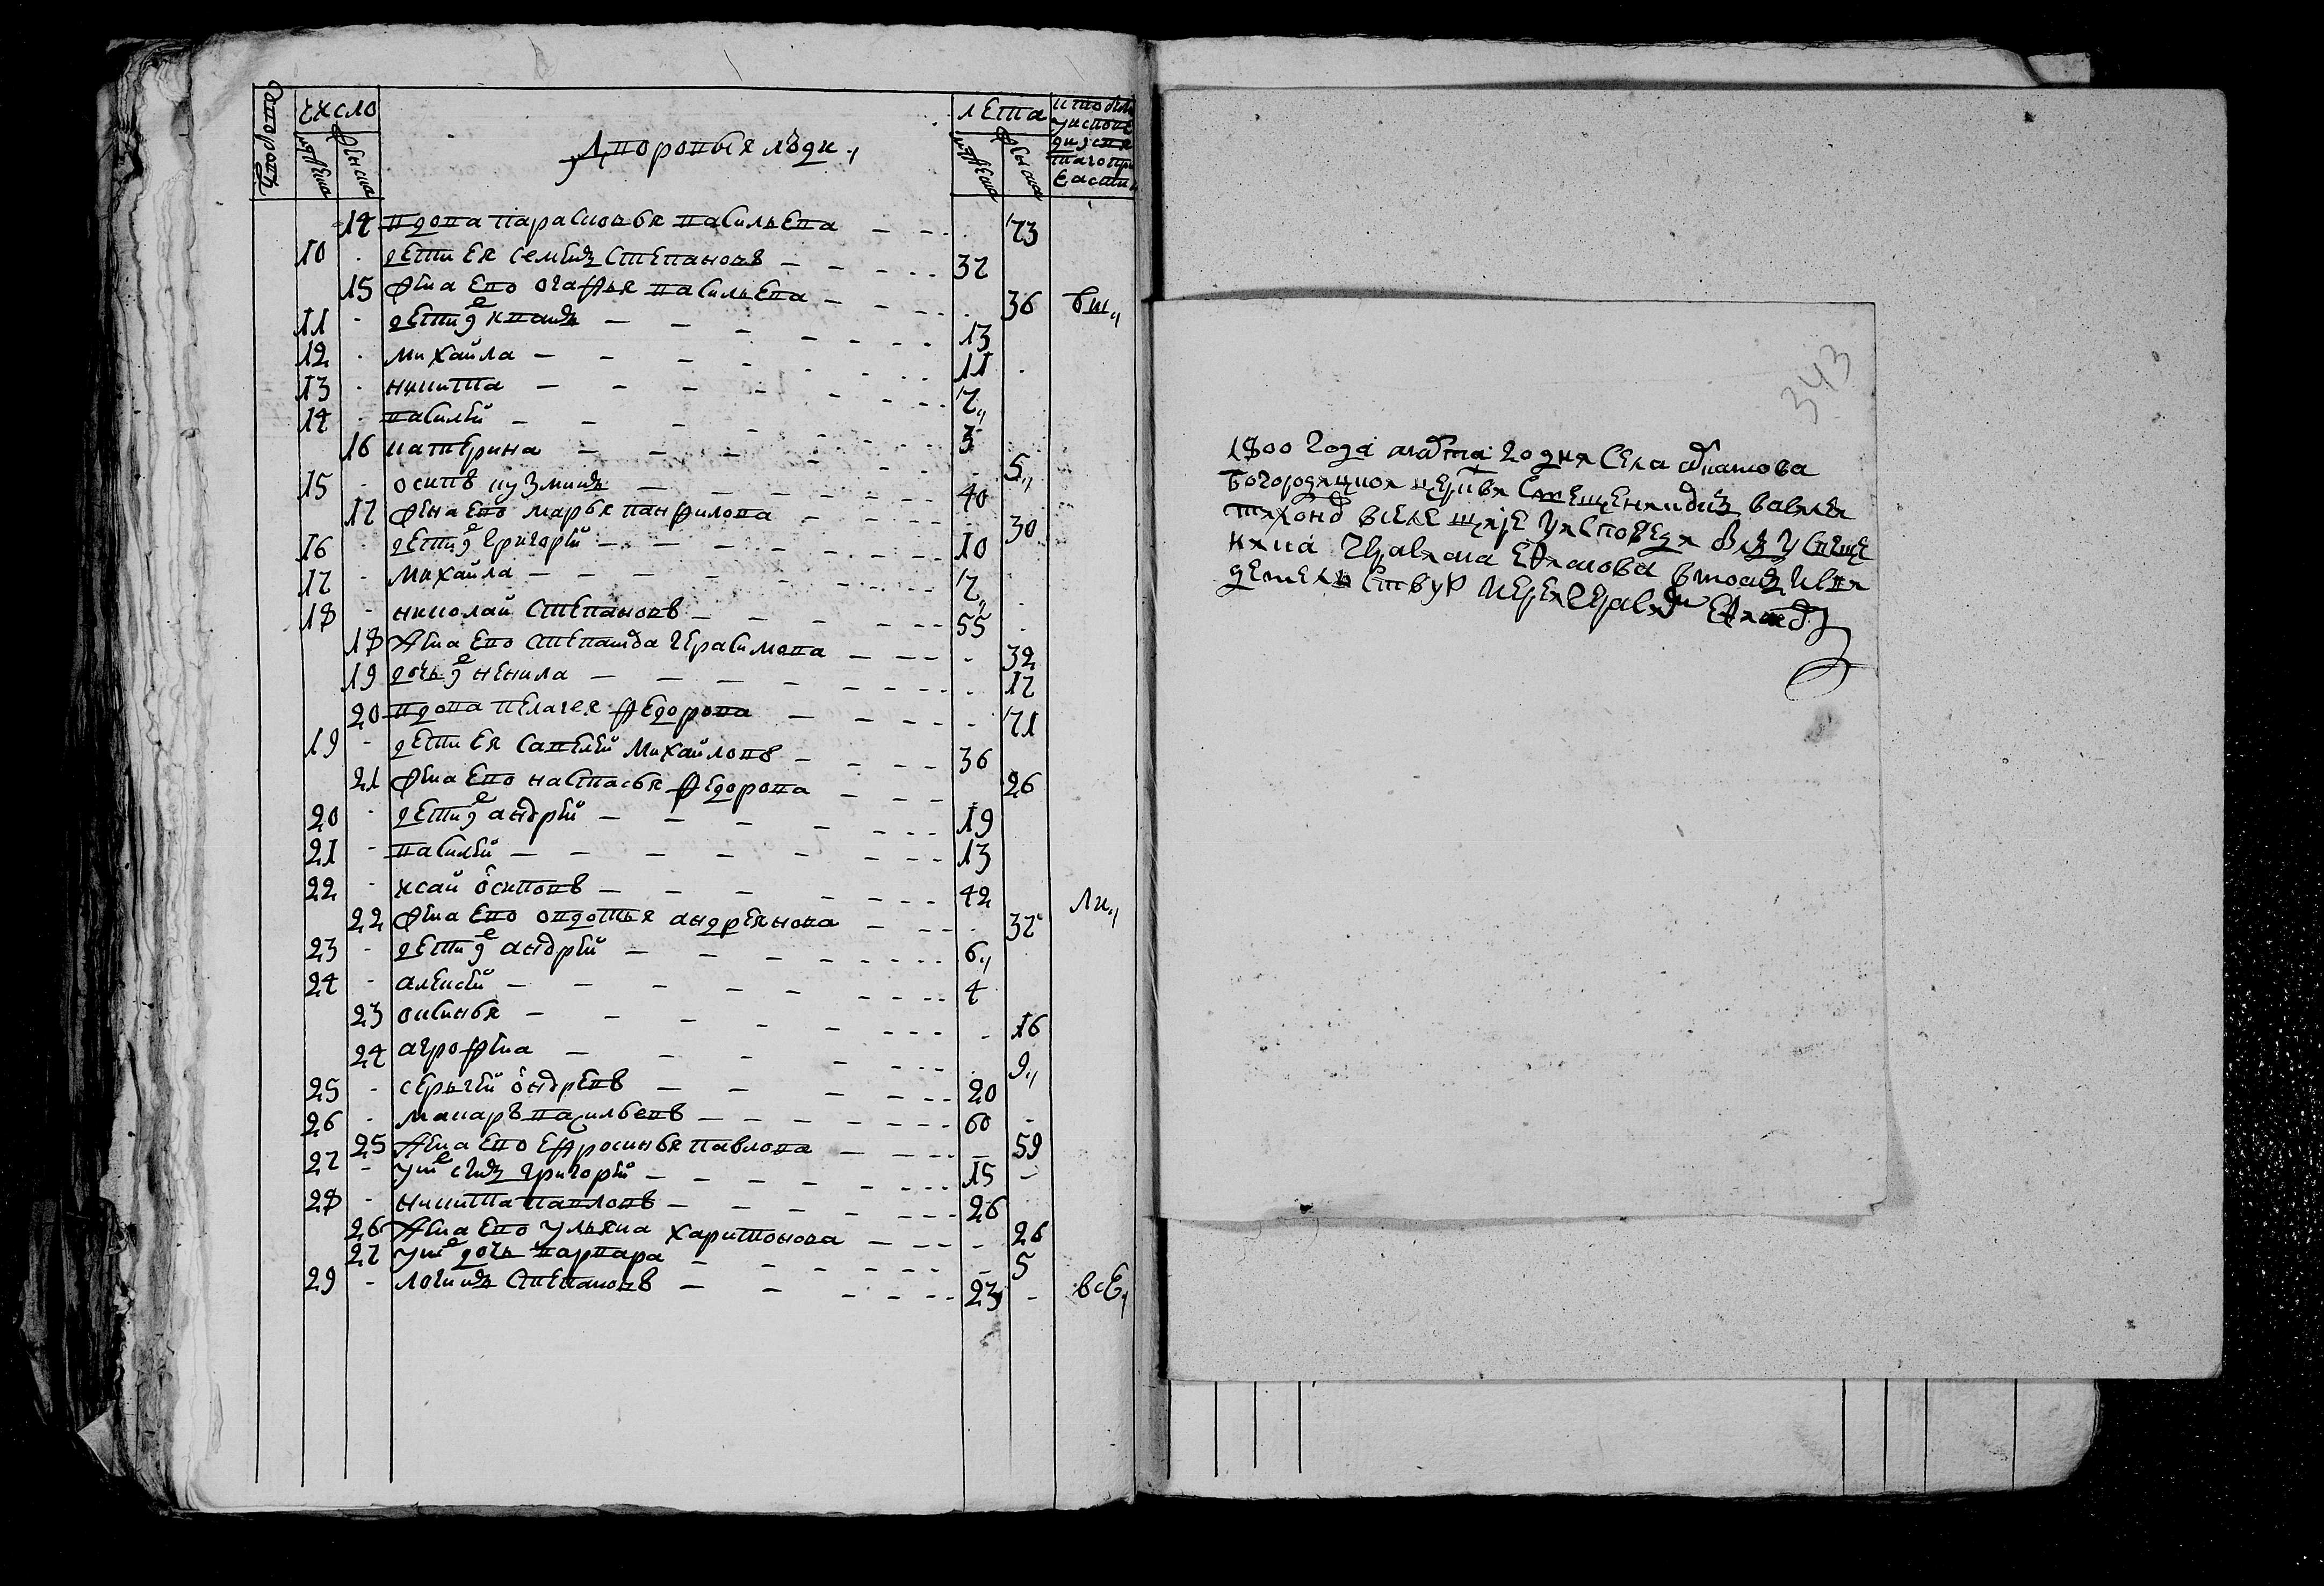 Дворовъ
число
мужеска
женска
Дворовыя люди
лета
мужеска
женска
кто был
у исповеди
и святаго причастия
14 вдова парасковья васильева 73
10 дети ея семенъ степановъ 37
15 жена ево огафья васильева 36 был
11 дети их иванъ 13
12 михайла 11
13 никита 7
14 василей 3
16 катерина 5
15 осипъ кузминъ 40
17 жена ево марья панфилова 30
16 дети их григорей 10
17 михайла 7
18 николай степановъ 55
18 жена ево степанида герасимова 32
19 дочь их ненила 17
20 вдова пелагея федорова 71
19 дети ея савелей михайловъ 36
21 жена ево настасья федорова 26
20 дети их андрей 19
21 василей 13
22 исай осиповъ 42
22 жена ево овдотья андреянова 37 ли
23 дети их андрей 6
24 алексей 4
23 оксинья 16
24 агрофена 9
25 сергей ондреевъ 20
26 макаръ васильевъ 60
25 жена ево ефросинья павлова 59
27 у них сынъ григорей 15
28 никита павловъ 26
26 жена ево ульяна харитонова 26
27 у них дочь варвара 5
29 логинъ степановъ 23 все
343
1800 года марта 20 дня села
Богородицкой церкви священникъ василей
тихонов
герасима ефимова в томъ и
детельствую иерей герасим ефимов